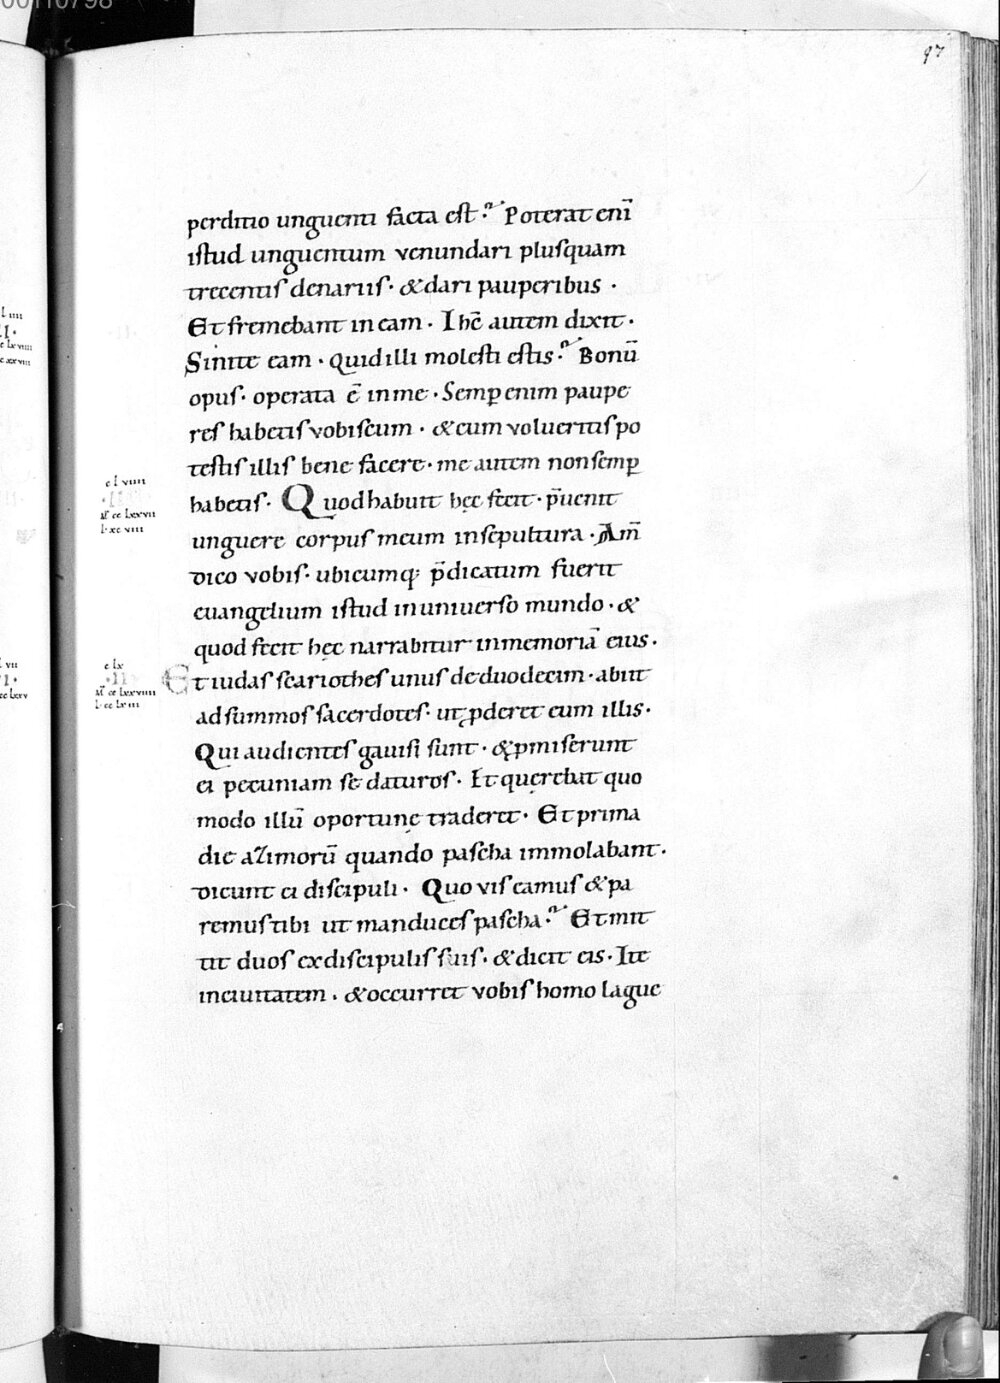 00110798
97
perditio unguenti facta est? Poterat enī
istud unguentum venundari plusquam
trecentis denariis · & dari pauperibus ·
Et fremebant in eam · Ihc̄ autem dixit ·
Sinite eam · quid illi molesti estis? Bonū
opus · operata ē in me · Semp̄ enim paupe
res habetis vobiscum · & cum volueritis po
testis illis bene facere · me autem non semp̄
habetis · Quod habuit hęc fecit · p̄uenit
unguere corpus meum in sepultura · Am̄
dico vobis · ubicumq; p̄dicatum fuerit
euangelium istud in uniuerso mundo · &
quod fecit hęc narrabitur in memoriā eius ·
Et iudas scariothes unus de duodecim · abiit
ad summos sacerdotes · ut ꝓderet eum illis ·
Qui audientes gauisi sunt · & ꝓmiserunt
ei pecuniam se daturos · Et querebat quo
modo illū oportune traderet · Et prima
die azimorū quando pascha immolabant ·
dicunt ei discipuli · Quo vis eamus & pa
remus tibi ut manduces pascha? Et mit
tit duos ex discipulis suis · & dicit eis · Ite
in ciuitatem · & occurret vobis homo lague
c lviiii
M̄ cc lxxvii
l· xc viii
c lx
·II·
M̄ cc lxxviiii
L· cc lxiii